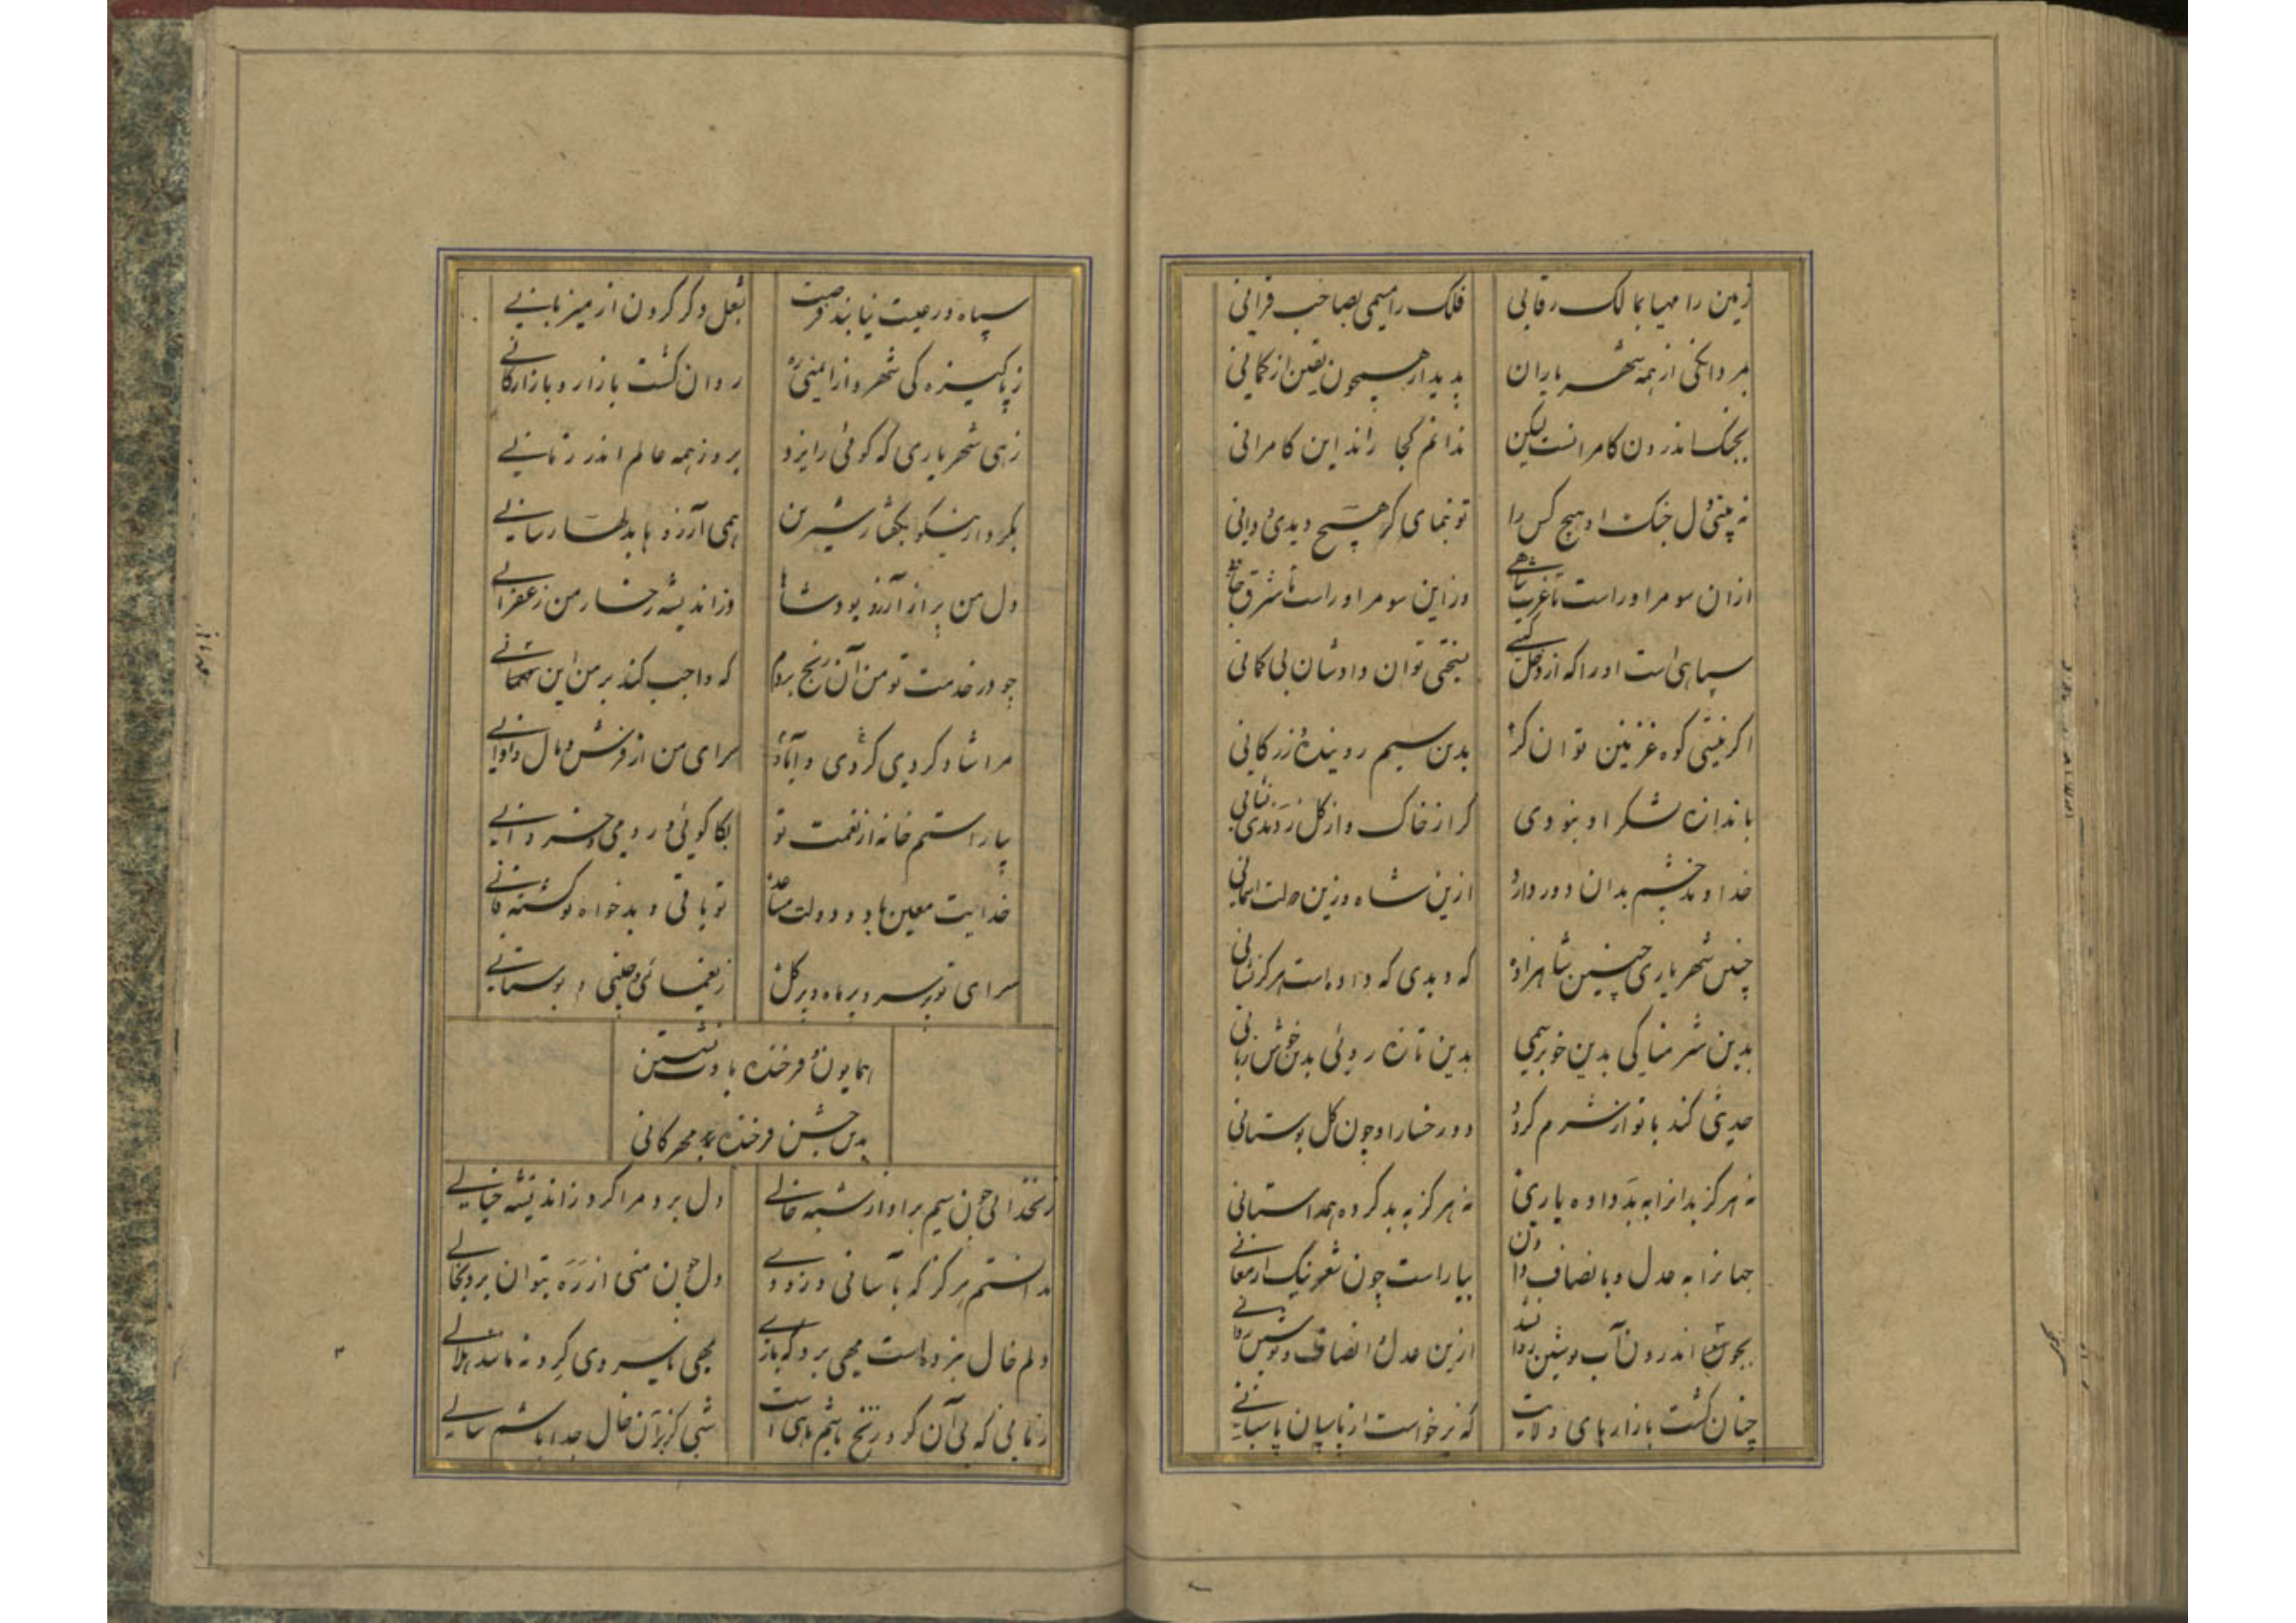 زمین را مهیا بمالک رقابی
فلک را مسمی بصاحب قرانی
بمردانگی از همه شهریاران
پدیدار همچون یقین از گمانی
بجنگ اندرون کامرانست لیکن
ندانم کجا راند این کامرانی
نه بینی دل جنک او هیچ کس را
تو بنمای گر هیچ دیدی و دانی
ازان سو مر او راست تا غرب شاهی
وزاین سو مر او راست تا شرق خانی
سپاهی است او را که از دخل گیتی
بسختی توان دادشان بی کانی
اگر نیستی کوه غزنین توانگر
بدین سیم روینده زر کانی
باندازه لشکر او نبودی
گر از خاک و از گل زدندی
خداوند چشم بدان دور دارد
ازین شاه وزین
چنین شهریاری چنین شاهزاده
که دیدی که داده است هرگز نشانی
بدین شرمناکی بدین خوب رسمی
بدین تازه روئی بدین خوش زبانی
حدیثی کند با تو از شرم گردد
دو رخسار او چون گل بوستانی
نه هرگز بدانرا به بد داده یاری
نه هرگز به بد کرده همداستانی
جهانرا به عدل و بانصاف دادن
بیاراست چون
بجوی اندرون آب نوشین روان شد
ازین عدل و انصاف نوشین روانی
چنان گشت بازارهای ولایت
که برخاست از پاسبان پاسبانی
سپاه و رعیت نیابند فرصت
بشغل دگر کردن از میزبانی
ز پاکیزه کی شهر و از ایمنی ره
روان گشت بازار و بازارگانی
زهی شهریاری که گوئی را ایزد
بروز همه عالم اندر زمانی
بکردار نیکو بگفتار شیرین
همی آرزوها بدلها رسانی
دل من پر از آرزو بود شاها
وز اندیشه رخسار من زعفرانی
چو در خدمت تو من آن رنج بردم
که واجب کند بر من این
مرا شاد کردی کردی و آباد
سرای من از فرش و مال و اوانی
بیاراستم خانه از نعمت تو
بکاکوئی و رومی و خسروانی
خدایت معین باد و دولت مساعد
تو باقی و بدخواه تو گشته فانی
سرای تو پر سرو و پر ماه و پر گل
ز یغمائی و چینی و بوستانی
همایون و فرخنده بادت نشستن
بدین جشن فرخنده مهرگانی
زنخدانی چون سیم بر او از شبه خالی
دل برد و مرا کرد ز اندیشه خیالی
نداستم هرگز که بآسانی و زودی
دل چون منی از ره بتوان برد بخالی
دلم خال نبرده است مهی برد که بازی
مهی با سروی کرد و نه ماند هلالی
شبی کز بر آن خال جدا باشم سالی